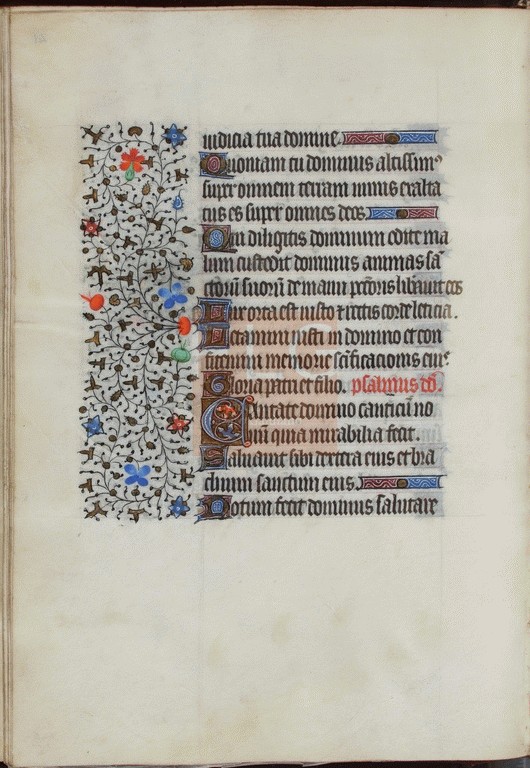 iudicia tua domine.
Quoniam tu dominus altissimꝰ
super omnem terram nimis exalta
tus es super omnes deos.
Qui diligitis dominum odite ma
lum custodit dominus animas sā
ctorū suorū de manu pctoris liberavit eos
Lux orta est iusto ⁊ rectis corde leticia.
Letamini iusti in domino et con
fitemini memorie scīficacionis eiꝰ
Gloria patri et filio. psalmus dd̄.
Cantate domino canticū no
uū quia mirabilia fecit.
Saluauit sibi dextera eius et bra
chium sanctum eius.
Notum fecit dominus salutare